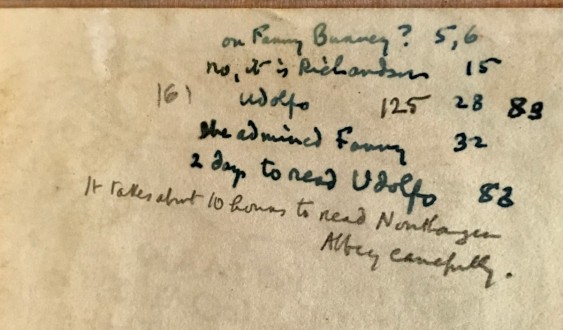 on Fanny Burney? 5, 6
no, it is Richardson 15
161 Udolfo 125 28 89
she admired Fanny 32
2 days to read Udolfo 83
It takes about 10 hours to read Northanger
Abbey carefully.